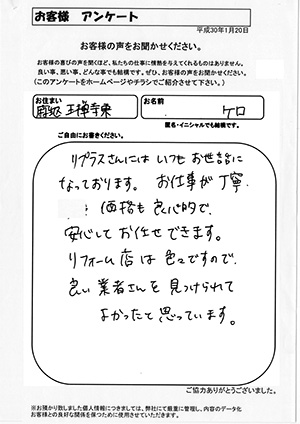 お客様　アンケート
平成30年1月20日
お客様の声をお聞かせください。
お客様の喜びの声を聞くほど、私たちの仕事に情熱を与えてくれるものはありません。
良い事、悪い事、どんな事でも結構です。ぜひ、お客様の声をお聞かせください。
(このアンケートをホームページやチラシでご紹介させて下さい。)
お住まい
王禅寺東
お名前
ケロ
匿名・イニシャルでも結構です。
ご自由にお書きください。
リプラスさんには いつも お世話に
なっております。 お仕事が丁寧
価格も 良心的で、
安心して お任せできます。
リフォーム店は 色々ですので、
良い 業者さんを 見つけられて
よかったと 思っています。
ご協力ありがとうございました。
※お預かり致しました個人情報につきましては、弊社にて厳重に管理し、内容のデータ化
お客様との良好な関係を保つために使用させていただきます。